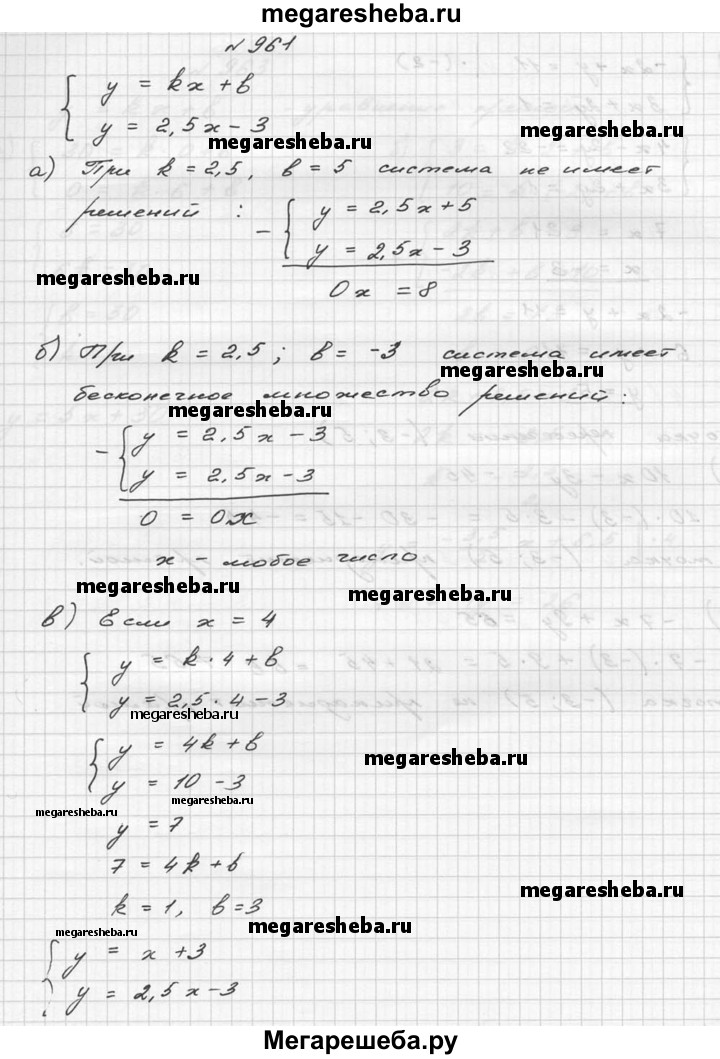 megaresheba.ru
№ 961
y = kx + b
y = 2,5x - 3
megaresheba.ru
megaresheba.ru
а) При k = 2,5, b = 5 система не имеет
решений :
- y = 2,5x + 5
y = 2,5x - 3
0x = 8
megaresheba.ru
б) При k = 2,5 ; b = -3 система имеет
megaresheba.ru
бесконечное множество решений :
megaresheba.ru
- y = 2,5x - 3
y = 2,5x - 3
0 = 0x
x - любое число
megaresheba.ru
megaresheba.ru
в) Если x = 4
y = k · 4 + b
y = 2,5 · 4 - 3
megaresheba.ru
y = 4k + b
megaresheba.ru
y = 10 - 3
megaresheba.ru
megaresheba.ru
y = 7
7 = 4k + b
megaresheba.ru
k = 1, b = 3
megaresheba.ru
megaresheba.ru
y = x + 3
y = 2,5x - 3
Мегарешеба.ру